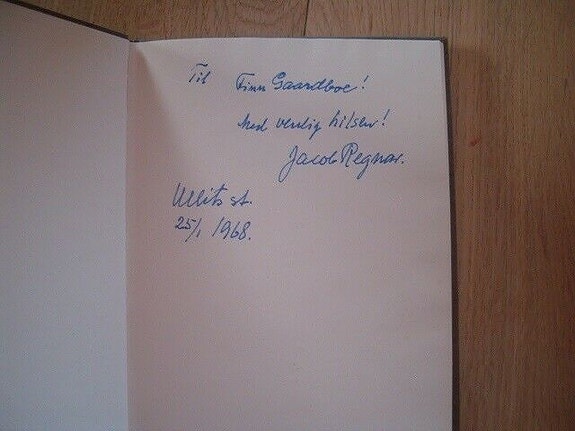 Til Finn Gaardboe!
Med venlig hilsen!
Jacob Regnar.
Ullits st.
25/1 1968.